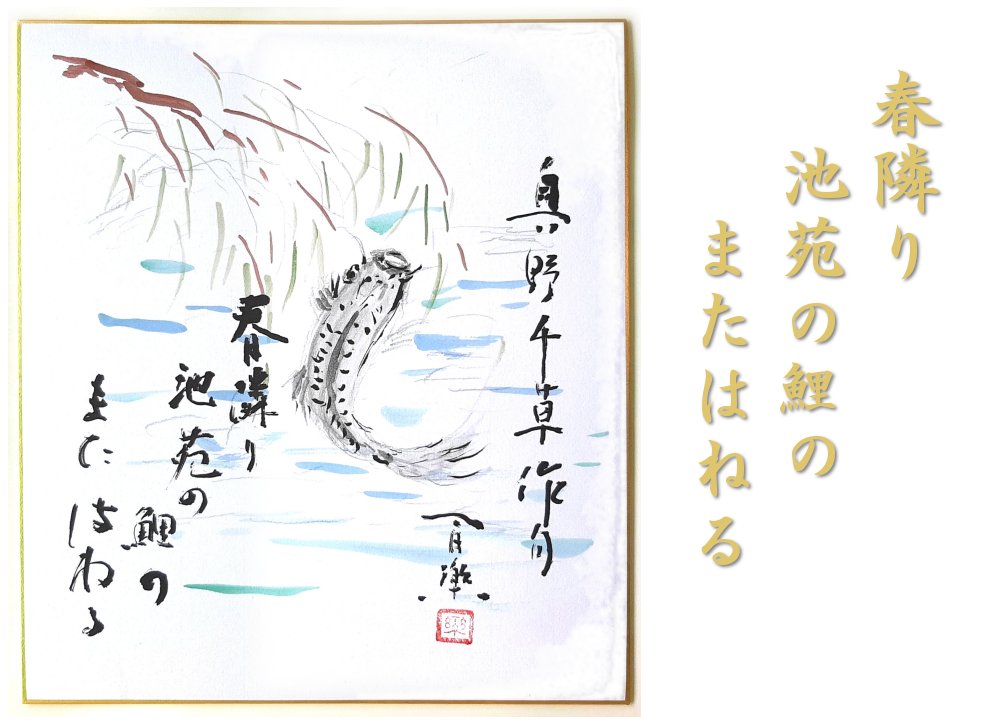 春隣り
池苑の鯉の
またはねる
真野千草作句
春隣り
池苑の
鯉の
またはねる